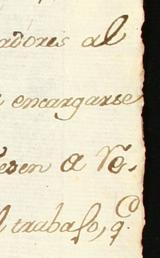 adores al
encargarse
esen a Vo.
l trabajo, q.